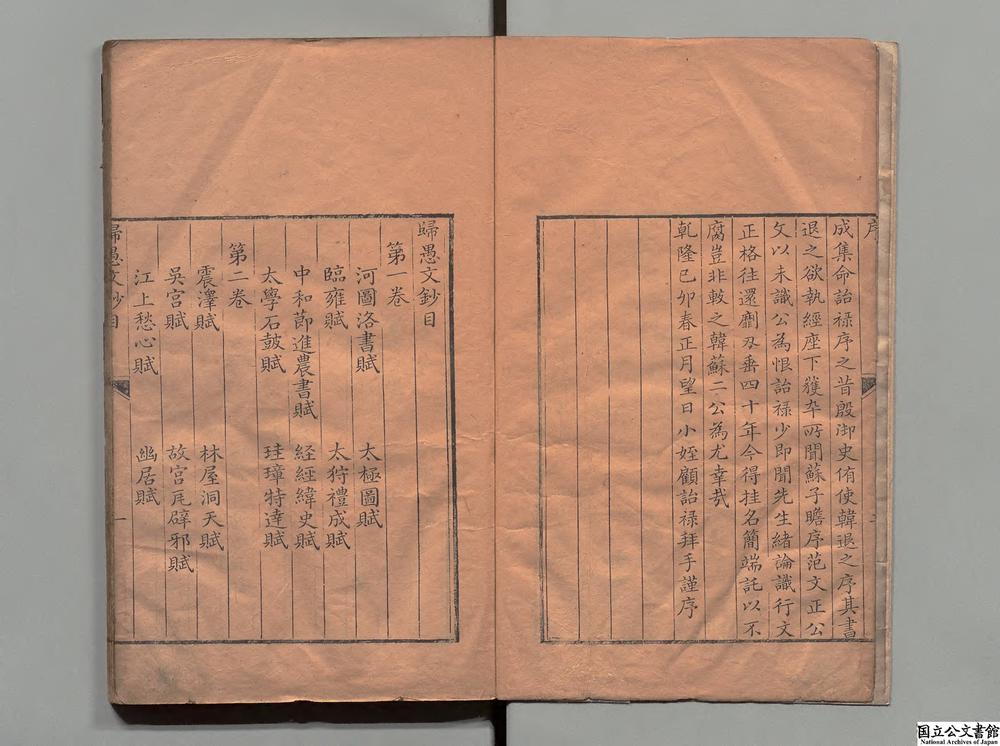 序
成集命詒禄序之昔殷御史侑使韓退之序其書
退之欲執經座下獲卒所聞蘇子瞻序范文正公
文以未識公為恨詒禄少即聞先生緒論識行文
正格往還劘切垂四十年今得挂名簡端託以不
腐豈非較之韓蘇二公為尤幸哉
乾隆己卯春正月望日小姪顧詒禄拜手謹序
二
歸愚文鈔目
第一卷
河圖洛書賦 太極圖賦
臨雍賦 太狩禮成賦
中和節進農書賦 経經緯史賦
太學石鼓賦 珪璋特達賦
第二卷
震澤賦 林屋洞天賦
吳宮賦 故宮瓦辟邪賦
江上愁心賦 幽居賦
歸愚文鈔目
一
国立公文書館
National Archives of Japan